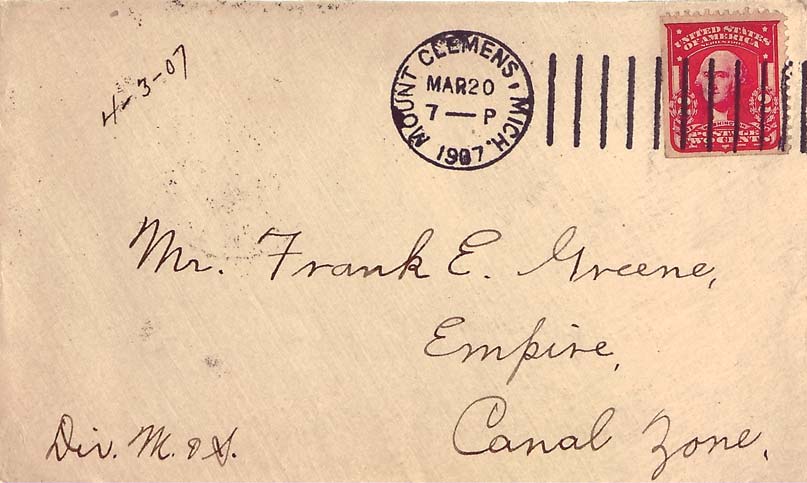 4-3-07
MOUNT CLEMENS, MICH.
MAR 20
7 — P
1907
UNITED STATES
OF AMERICA
POSTAGE
TWO CENTS
Mr. Frank E. Greene,
Empire,
Canal Zone.
Div. M. & S.